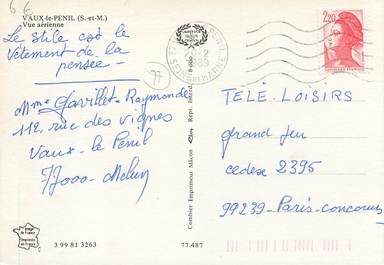 6 €
VAUX-le-PENIL (S.-et-M.)
Vue aérienne
Le stile est le
vêtement de la
pensée —
77
Mme Gavillet Raymonde
112, rue des vignes
Vaux - le Penil
77000 - Melun
3 99 81 3263
77.487
Combier Imprimeur Mâcon
Repr. Interd.
77 PENIL
1989
SEINE et MARNE
2,20
TÉLÉ-LOISIRS
grand jeu
cedex 2395
99239 - Paris-concours